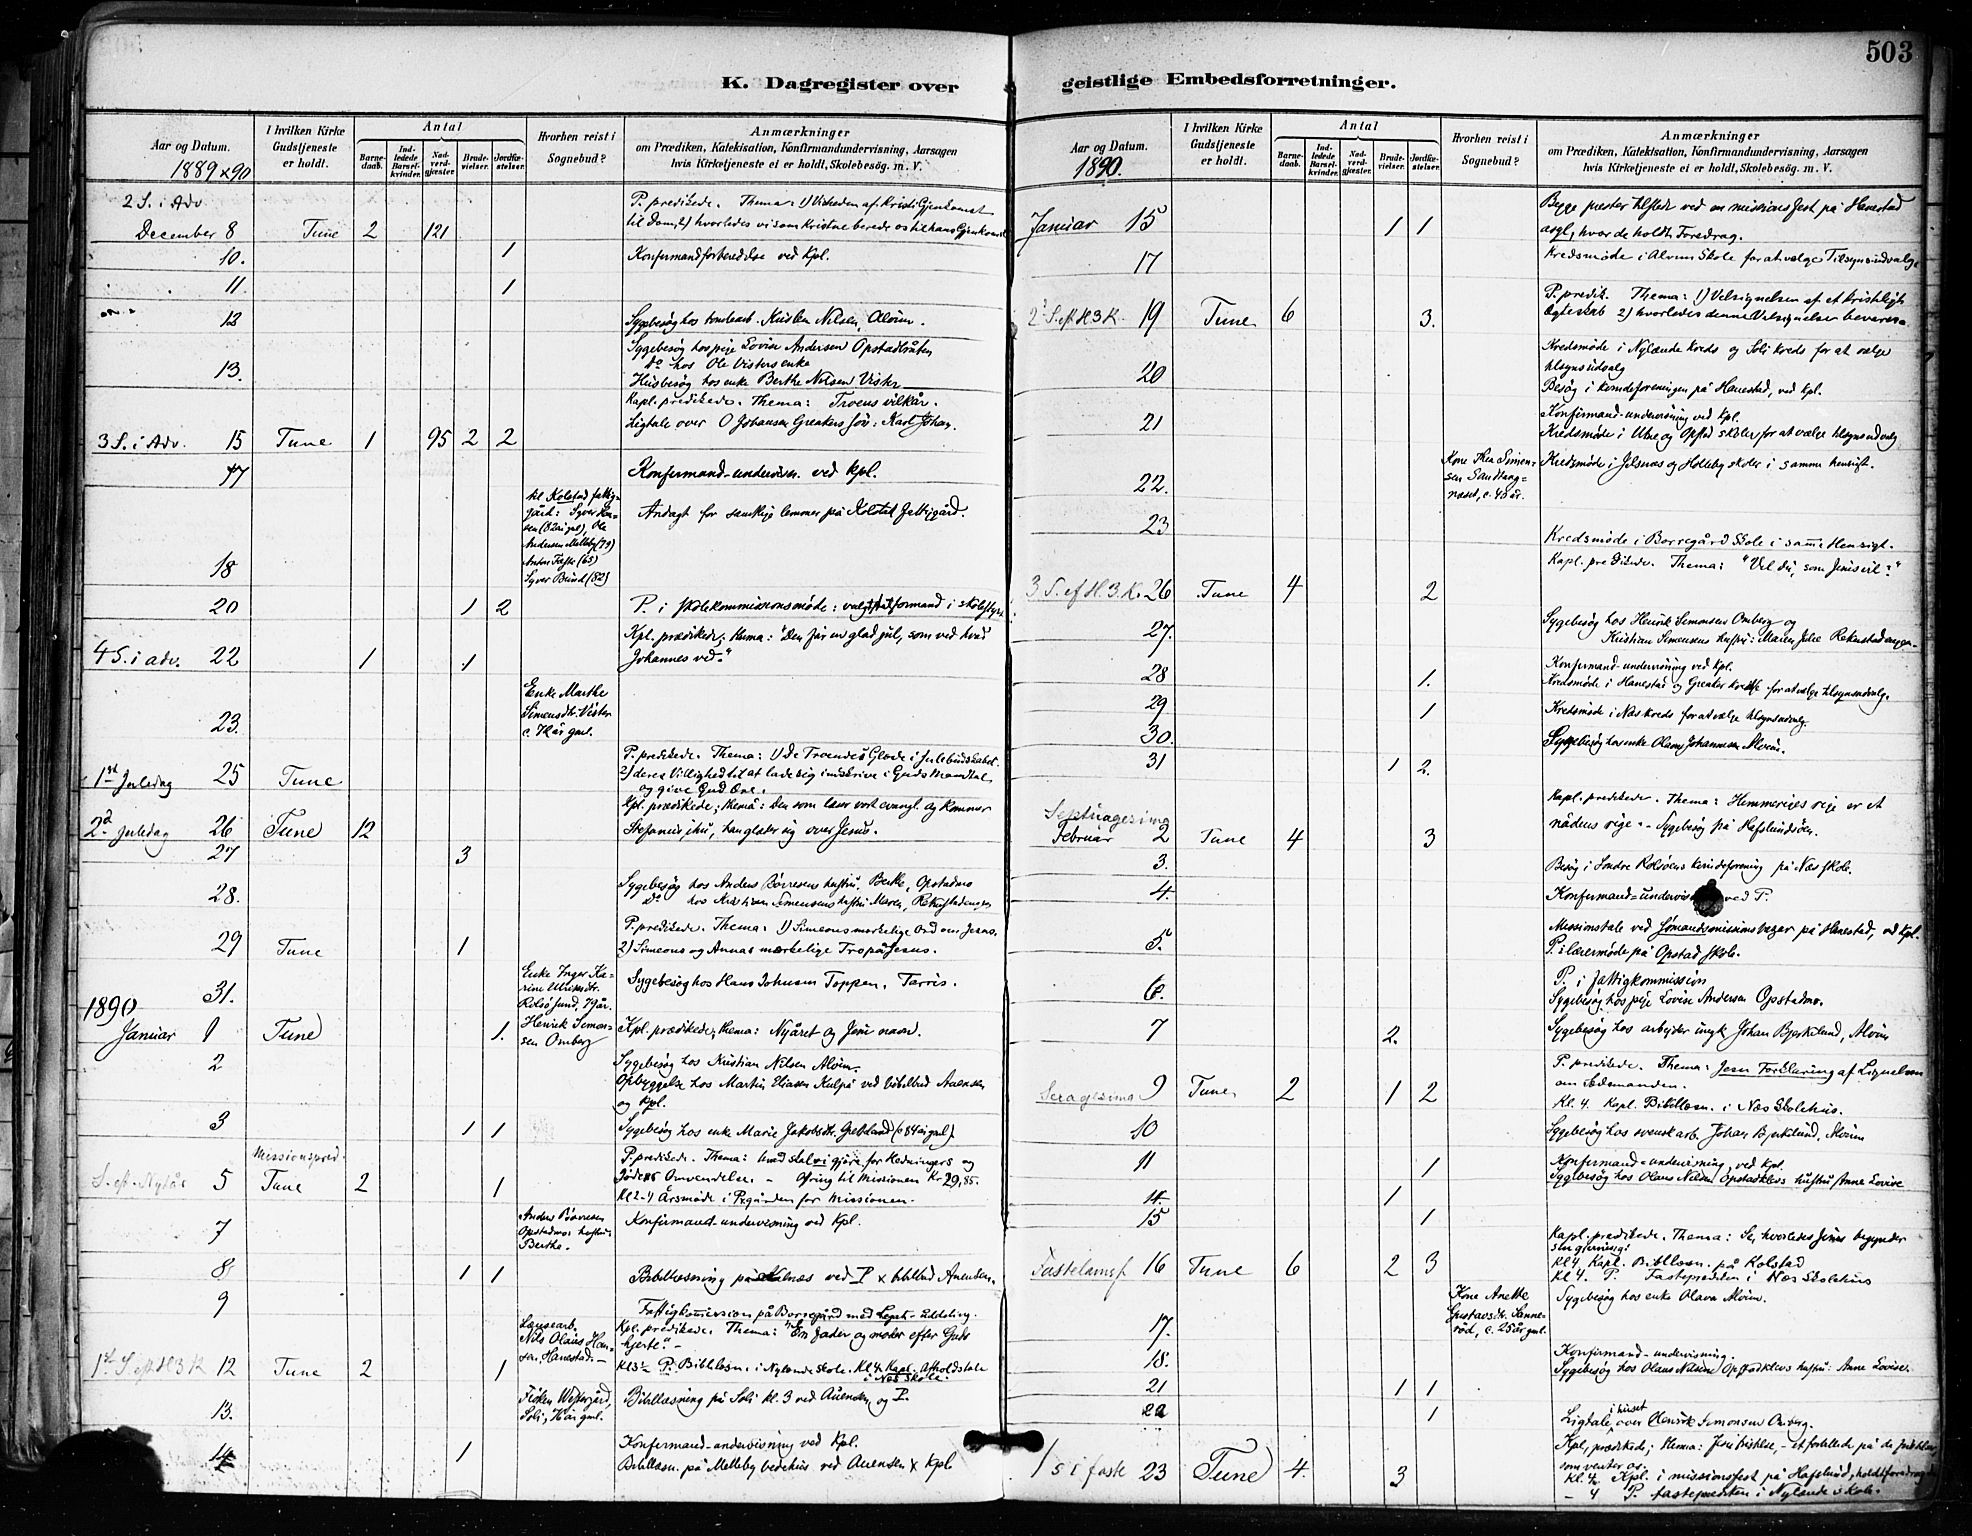 503
K. Dagregister over
geistlige Embedsforretninger.
Aar og Datum.
1889 x 90
I hvilken Kirke Gudstjeneste er holdt.
Antal
Barnedaab.
Indledede Barselkvinder.
Nadverdgjæster.
Brudevielser.
Jordfæstelser.
Hvorhen reist i Sognebud?
Anmærkninger
om Prædiken, Katekisation, Konfirmandundervisning, Aarsagen
hvis Kirketjeneste ei er holdt, Skolebesøg. m. V.
2 S. i Adv
P. predikede. Thema: 1) Visheden af Kristi Gjenkomst
December 8 Tune 2 121 til Dom, 2) hvorledes vi som Kristne berede os til hans Gjenkomst
10. 1 Konfirmandforberedelse ved Kpl.
11. 1
12 Sygebesøg hos Nilsen, Alvim.
Sygebesøg hos pige Lovise Andersen Opstadbråten
13. do hos Ole Visters enke
Husbesøg hos enke Berthe Nilsen Vister
Kapl. predikede. Thema: Troens vilkår.
Ligtale over O Johansen Greakers søn: Karl Johan.
3 S. i Adv. 15 Tune 1 95 2 2
17 Konfirmand-undervisn. ved Kpl.
til Kolstad fattig-
gård: Syver
Andagt for lemmer på Kolstad Fattiggård.
Andersen Melleby (79)
18 Syver Bund (82)
20 1 2 P. i skolekommissionsmøde: valgt formand i skolestyr.
Kpl. prædikede; thema: "Den får en glad jul, som ved hvad
4 S. i adv. 22 1 1 Johannes ved."
Enke Marthe
Simensdtr. Vister
23. c. 72 år gml.
P. predikede. Thema: 1) De Troendes Glæde i Julebudskabet.
1st Juledag 25 Tune 2) deres Villighed til at lade sig indskrive i Guds Mandtal
og give Gud Ære.
Kpl. prædikede; thema: Den som læser vort evangl. og kommer
2d Juledag 26 Tune 12 Stefanus ihu, han glæder sig over Jesus.
27 3
28. Sygebesøg hos Anders Børresens hustru, Berthe, Opstadmo
do hos Kristian Simensens hustru Maren,
P. predikede. Thema: 1) Simeons mærkelige Ord om Jesus.
29 Tune 1 2) Simeons og Annas mærkelige Tro på Jesus.
Enke Inger Ka-
rine
31. Rolsøsund, 79 år. Sygebesøg hos Hans Johnsen Toppen, Tarris.
1890
Januar 1 Tune 1. Henrik Simon-
sen Omberg Kpl. prædikede; thema: Nyåret og Jesu navn.
2 Sygebesøg hos Kristian Nilsen Alvim.
Opbyggelse hos Martin Eliasen Kulpå ved bibelbud Auensen
og Kpl.
3 1 1 Sygebesøg hos enke Marie Jakobsdtr. Grettland (c 84 år gml).
Missionspred.
P. predikede. Thema: hvad skal vi gjøre for Hedningers og
S. eft. Nytår 5 Tune 2 1 Jøders Omvendelse. – Ofring til Missionen Kr 29,85.
Kl 2-4 Årsmøde i Pgården for missionen.
7 Anders Børresen
Opstadmos hustru
Berthe. Konfirmand-undervisning ved Kpl.
8 1 1 Bibellæsning på Alnæs ved P x bibelbud Auensen.
9 Fattigkommission på Borregård med Legat-Uddeling.
Løsearb.
Nils Olaus Han-
sen, Hanestad. Kpl. predikede. Thema: "En fader og moder efter Guds
hjerte." –
1st S eft H 3 K 12 Tune 2 1 Kl 3½ P. Bibellæsn. i Nylænde skole. Kl 4 Kapl. Afholdstale
i Næs skole.
13. Soli, år gml. Bibellæsning på Soli kl. 3 ved Auensen og P.
14 1 Konfirmand-undervisning ved Kpl.
Bibellæsn. på Melleby bedehus ved Auensen x Kpl
Aar og Datum.
1890.
I hvilken Kirke Gudstjeneste er holdt.
Antal
Barnedaab.
Indledede Barselkvinder.
Nadverdgjæster.
Brudevielser.
Jordfæstelser.
Hvorhen reist i Sognebud?
Anmærkninger
om Prædiken, Katekisation, Konfirmandundervisning, Aarsagen
hvis Kirketjeneste ei er holdt, Skolebesøg. m. V.
Januar 15 1 1 Begge præster tilstede ved en missionsfest på Hanestad
asyl, hvor de holdt Foredrag.
17 Kredsmøde i Alvim Skole for at vælge Tilsynsudvalg.
P. predik. Thema: 1) Velsignelsen af et kristeligt
2 S. eft H 3 K. 19 Tune 6 3. Ægteskab 2) hvorledes denne Velsignelse bevares.
20 Kredsmøde i Nylænde kreds og Soli kreds for at vælge
tilsynsudvalg
Besøg i kvindeforeningen på Hanestad, ved Kpl.
21 Konfirmand-undervisning ved Kpl.
Kredsmøde i Utne og Opstad skoler for at vælge tilsynsudvalg
22. Kone Thea Simen-
sen Sandbag-
næset, c. 48 år. Kredsmøde i Jelsnæs og Holleby skoler i samme hensigt.
23 Kredsmøde i Borregård Skole i samme Hensigt.
Kapl. predikede. Thema: "Vil du, som Jesus vil?"
3 S. ef H. 3. K. 26 Tune 4 2
27. Sygebesøg hos Henrik Simonsen Omberg og
Kristian Simensens hustru: Maren Julie
28 1. Konfirmand-undervisning ved Kpl.
Kredsmøde i Hanestad og Greaker kredse for at vælge tilsynsudvalg.
29 1 Kredsmøde i Næs kreds for at vælge tilsynsudvalg.
30. Sygebesøg hos enke Olava Johannesen Alvim.
31 1 2.
Septuagesima
Kapl. predikede. Thema: Himmeriges rige er et
Februar 2 Tune 4 3 nådens rige. – Sygebesøg på Hafslundsøen.
3. Besøg i Søndre Rolsøens kvindeforening på Næs skole.
4. Konfirmand-undervis ved P.
5. Missionstale ved Sømandsmissionsbazar på Hanestad, ved Kpl.
P. i lærermøde på Opstad skole.
6. P. i Fattigkommission
Sygebesøg hos pige Lovise Andersen Opstadmo.
7 2. Sygebesøg hos arbejder Johan Bjerkelund, Alvim
P. predikede. Thema: Jesu Forklaring af Lignelsen
Sexagesima 9 Tune 2 1 2 om Sædmanden.
Kl. 4. Kapl. Bibellæsn. i Næs Skolehus.
10 Sygebesøg hos svensk arb. Johan Bjerkelund, Alvim
11 1 Konfirmand-undervisning, ved Kpl.
Sygebesøg hos Olaus Nilsen Opstadklevs hustru Anne Lovise
14. 1
15 1
Kapl. predikede. Thema: Se, hvorledes Jesus begynder
sin gjerning!
Fastelavnsf. 16 Tune 6 2 3 Kl 4 Kapl. Bibellæsn. på Kolstad
Kl 4. P. Fasteprediken i Næs Skolehus
17. Kone Anette
Gustavsdtr. Sanne-
rød, c. 25 år gml. Sygebesøg hos enke Olava Alvim.
18. Konfirmand-undervisning.
Sygebesøg hos Olaus Nilsens Opstadklevs hustru: Anne Lovise.
21 1 1
22 1 Ligtale i huset over Henrik Simonsen Omberg.
Kpl. prædikede; thema: Jesu fristelse, – et forbillede på de fristelser
1 s i faste 23 Tune 4. 3 som venter os.
Kl. 4 Kpl. i missionsfest på Hafslund, holdt foredrag
– 4 P. fasteprediken i Nylænde skole.